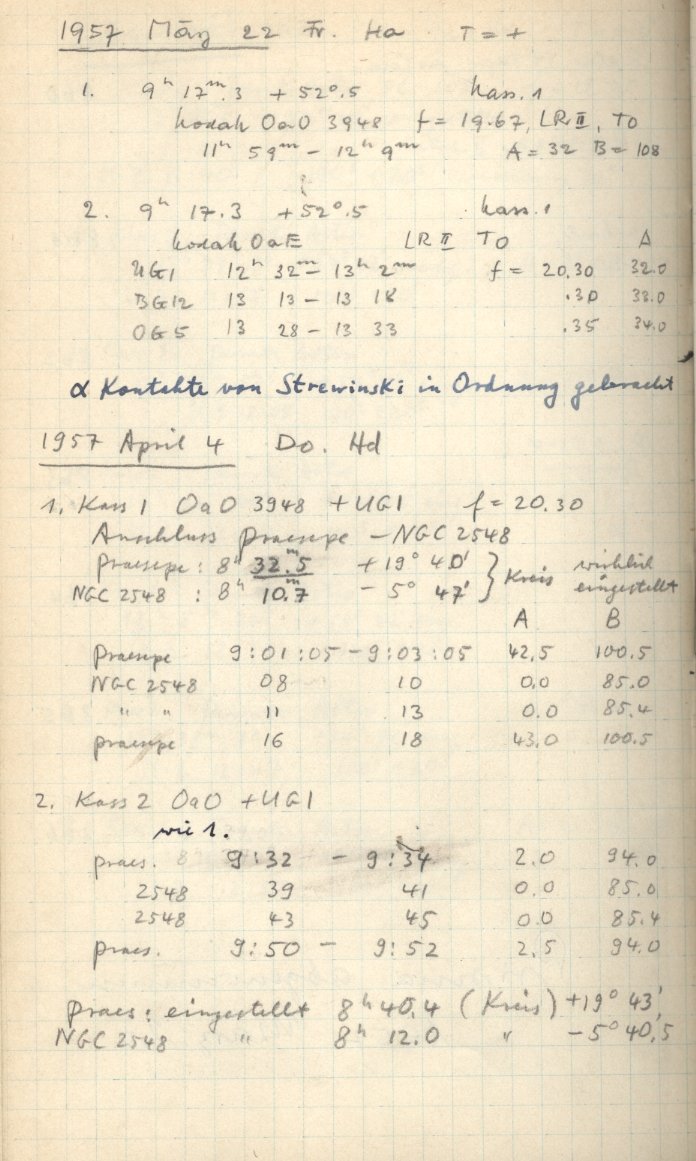 1957 März 22 Fr. Ha T = +
1. 9ʰ 17ᵐ.3 +52°.5 Kass. 1
Kodak OaO 3948 f = 19.67, LR II, TO
11ʰ 59ᵐ – 12ʰ 9ᵐ A = 32 B = 108
2. 9ʰ 17.3 +52°.5 Kass. 1
Kodak OaE LR II TO A
UG1 12ʰ 32ᵐ – 13ʰ 2ᵐ f = 20.30 32.0
BG12 13 13 – 13 18 .30 33.0
OG5 13 28 – 13 33 .35 34.0
α Kontakte von Strewinski in Ordnung gebracht
1957 April 4 Do. Hd
1. Kass 1 OaO 3948 + UG1 f = 20.30
Anschluss Praesepe – NGC 2548
Praesepe : 8ʰ 32ᵐ.5 +19° 40' } Kreis wirklich
NGC 2548 : 8ʰ 10ᵐ.7 – 5° 47' eingestellt
A B
Praesepe 9:01:05 – 9:03:05 42.5 100.5
NGC 2548 08 10 0.0 85.0
" " 11 13 0.0 85.4
praesepe 16 18 43.0 100.5
2. Kass 2 OaO + UG1
wie 1.
praes. 9:32 – 9:34 2.0 94.0
2548 39 41 0.0 85.0
2548 43 45 0.0 85.4
praes. 9:50 – 9:52 2.5 94.0
praes: eingestellt 8ʰ 40.4 (Kreis) +19° 43'
NGC 2548 " 8ʰ 12.0 " – 5° 40,5